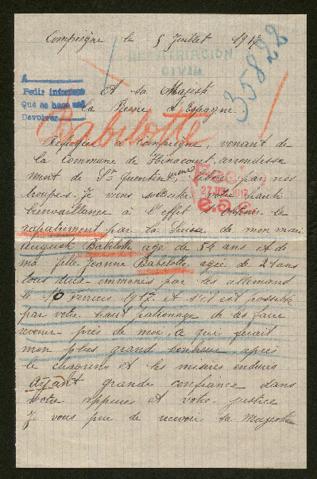 Compiègne le 5 Juillet 1917
REPATRIACION
CIVIL
35822
A
Pedir informes
Qué se hace sel
Devolver
Et sa Majesté
la Reine d'Espagne
Babilotte
Réfugiée à Compiègne, venant de
la Commune de arrondisse
ment de St Quentin libérée par nos
troupes. Je viens votre haute
bienveillance à l'effet
rapatriement par la Suisse de mon mari
Auguste Babilotte age de 54 ans et de
ma fille Jeanne Babilotte agée de 21 ans
tous deux emmenés par les allemand
le 10 février 1917 et s'il est possible
par votre haut patronage de les faire
revenir près de moi ce qui ferait
mon plus grand bonheur après
le chagrins et les misères endurés
ayant grande confiance dans
votre appuies et votre justice
Je vous prie de recevoir sa Majesté